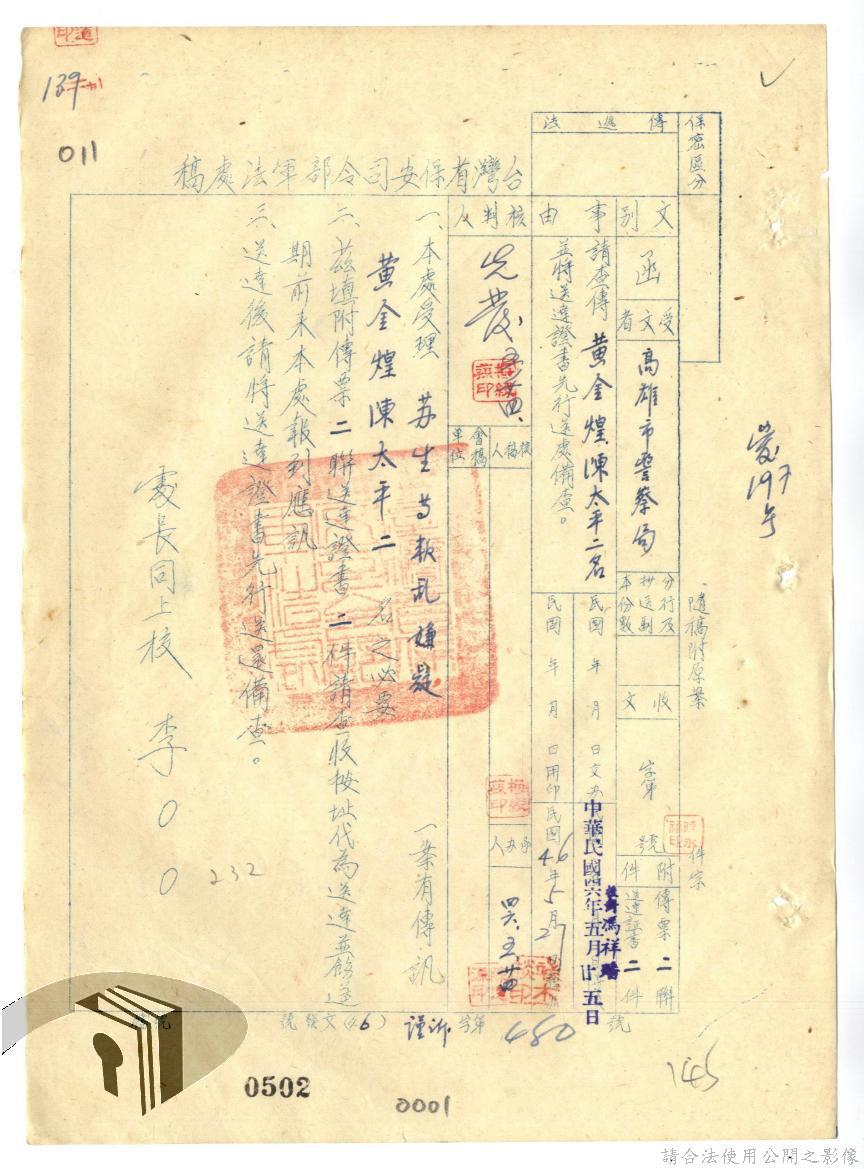 139
011
台灣省保安司令部軍法處稿
保密區分
傳遞法
文別
函
受文者
高雄市警察局
分行及抄送副本份數
收文
字第
號
附件
傳票二聯
送達証書二件
事由
請查傳 黃金煌、陳太平二名
並將送達證書先行送處備查。
民國 年 月 日文
中華民國四六年五月廿五日
民國 年 月 日用印
民國46年5月27
核判人
核稿人
會稿單位
承办人
四六、五、廿四
一、本處受理 苏生等叛乱嫌疑 一案有傳訊
黃金煌陳太平二 名之必要
二、茲填附傳票二聯送達證書二件請查收按址代為送達並飭遵
期前來本處報到應訊
三、送達後請將送達證書先行送還備查。
處長同上校 李○○
232
隨稿附原案
件宗
197号
號發文(46)謹浙字第480號
145
0502
0001
請合法使用公開之影像